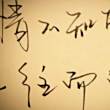 情不知
一往而